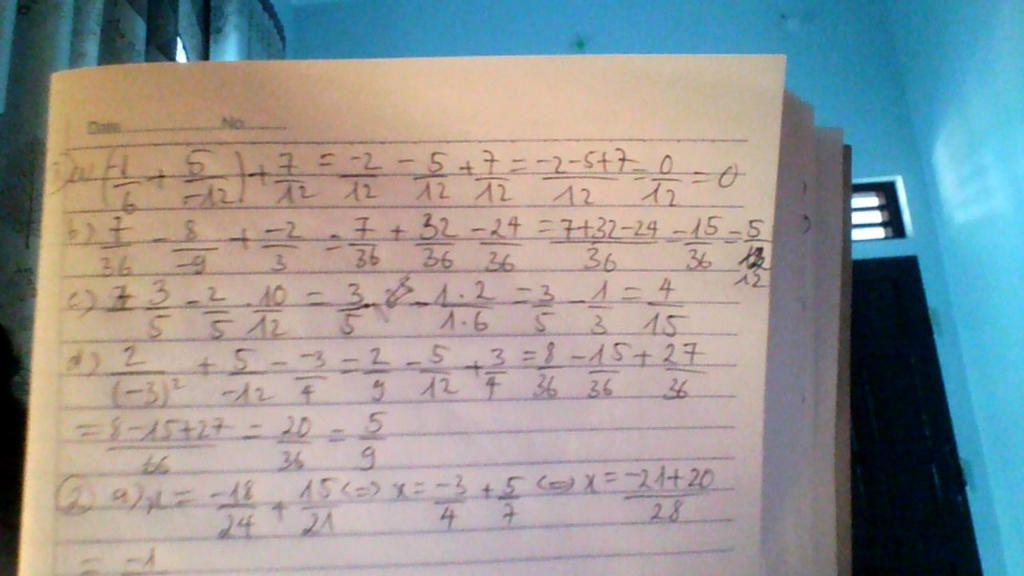 Date No
1) a) (-1/6 + 5/-12) + 7/12 = -2/12 - 5/12 + 7/12 = -2-5+7/12 = 0/12 = 0
b) 7/36 - 8/-9 + -2/3 = 7/36 + 32/36 - 24/36 = 7+32-24/36 = 15/36 = 5/12
c) 3/5 - 2/5 . 10/12 = 3/5 - 1.2/1.6 = 3/5 - 1/3 = 4/15
d) 2/(-3)² + 5/-12 - -3/4 = 2/9 - 5/12 + 3/4 = 8/36 - 15/36 + 27/36
= 8-15+27/36 = 20/36 = 5/9
② a) x = -18/24 + 15/21 <=> x = -3/4 + 5/7 <=> x = -21+20/28
= -1